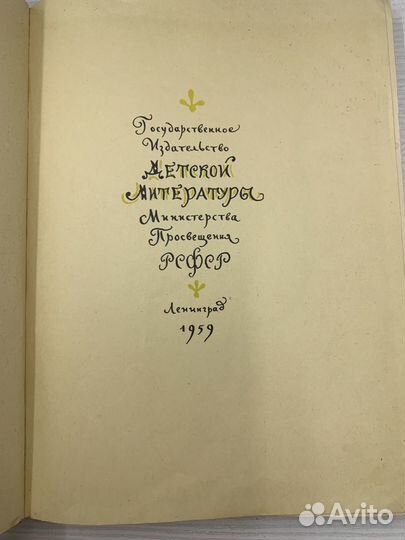 Государственное
Издательство
Детской
Литературы
Министерства
Просвещения
РСФСР
Ленинград
1959
Avito